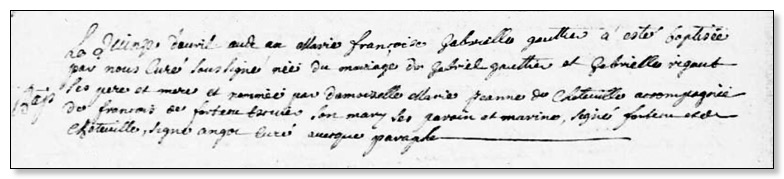 Le Quinze d'avril audt an Marie françoise Gabrielle gautier a esté baptisée
par nous Curé soussigné née du mariage de Gabriel gautier et Gabrielle rigaut
Bap
ses pere et mere et nommée par damoiselle Marie Jeanne de Choteville accompagnée
de françois de son mary ses parain et marine, signé et de
Choteville, signé angot Curé avecque paraphe